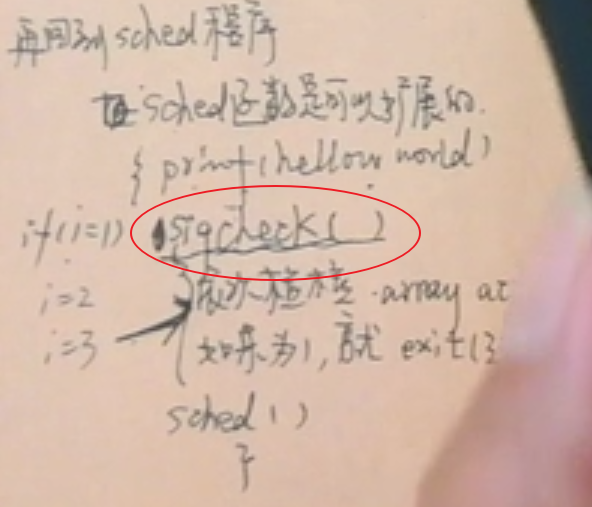 再回到sched程序
sched函数是可以扩展的.
{ printf(hellow world)
if(i=1) sigcheck()
i=2 依次检查 array at
i=3 如果为1,就 exit(3
sched()
}